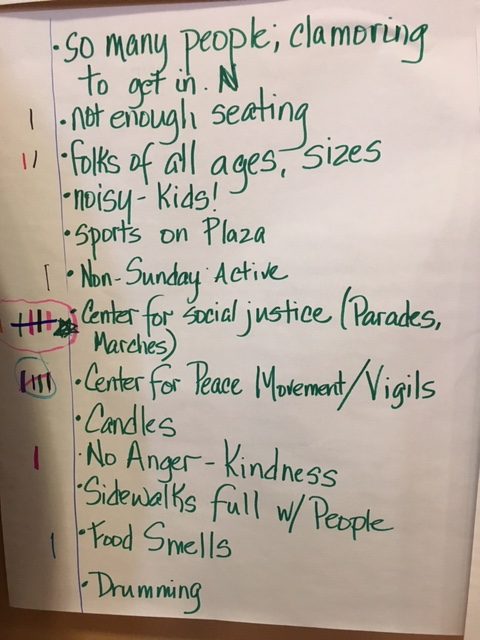 • So many people; clamoring
to get in. N
• not enough seating
• folks of all ages, sizes
• noisy - Kids!
• Sports on Plaza
• Non-Sunday Active
• Center for social justice (Parades,
Marches)
• Center for Peace Movement/Vigils
• Candles
• No Anger - Kindness
• Sidewalks full w/ People
• Food Smells
• Drumming